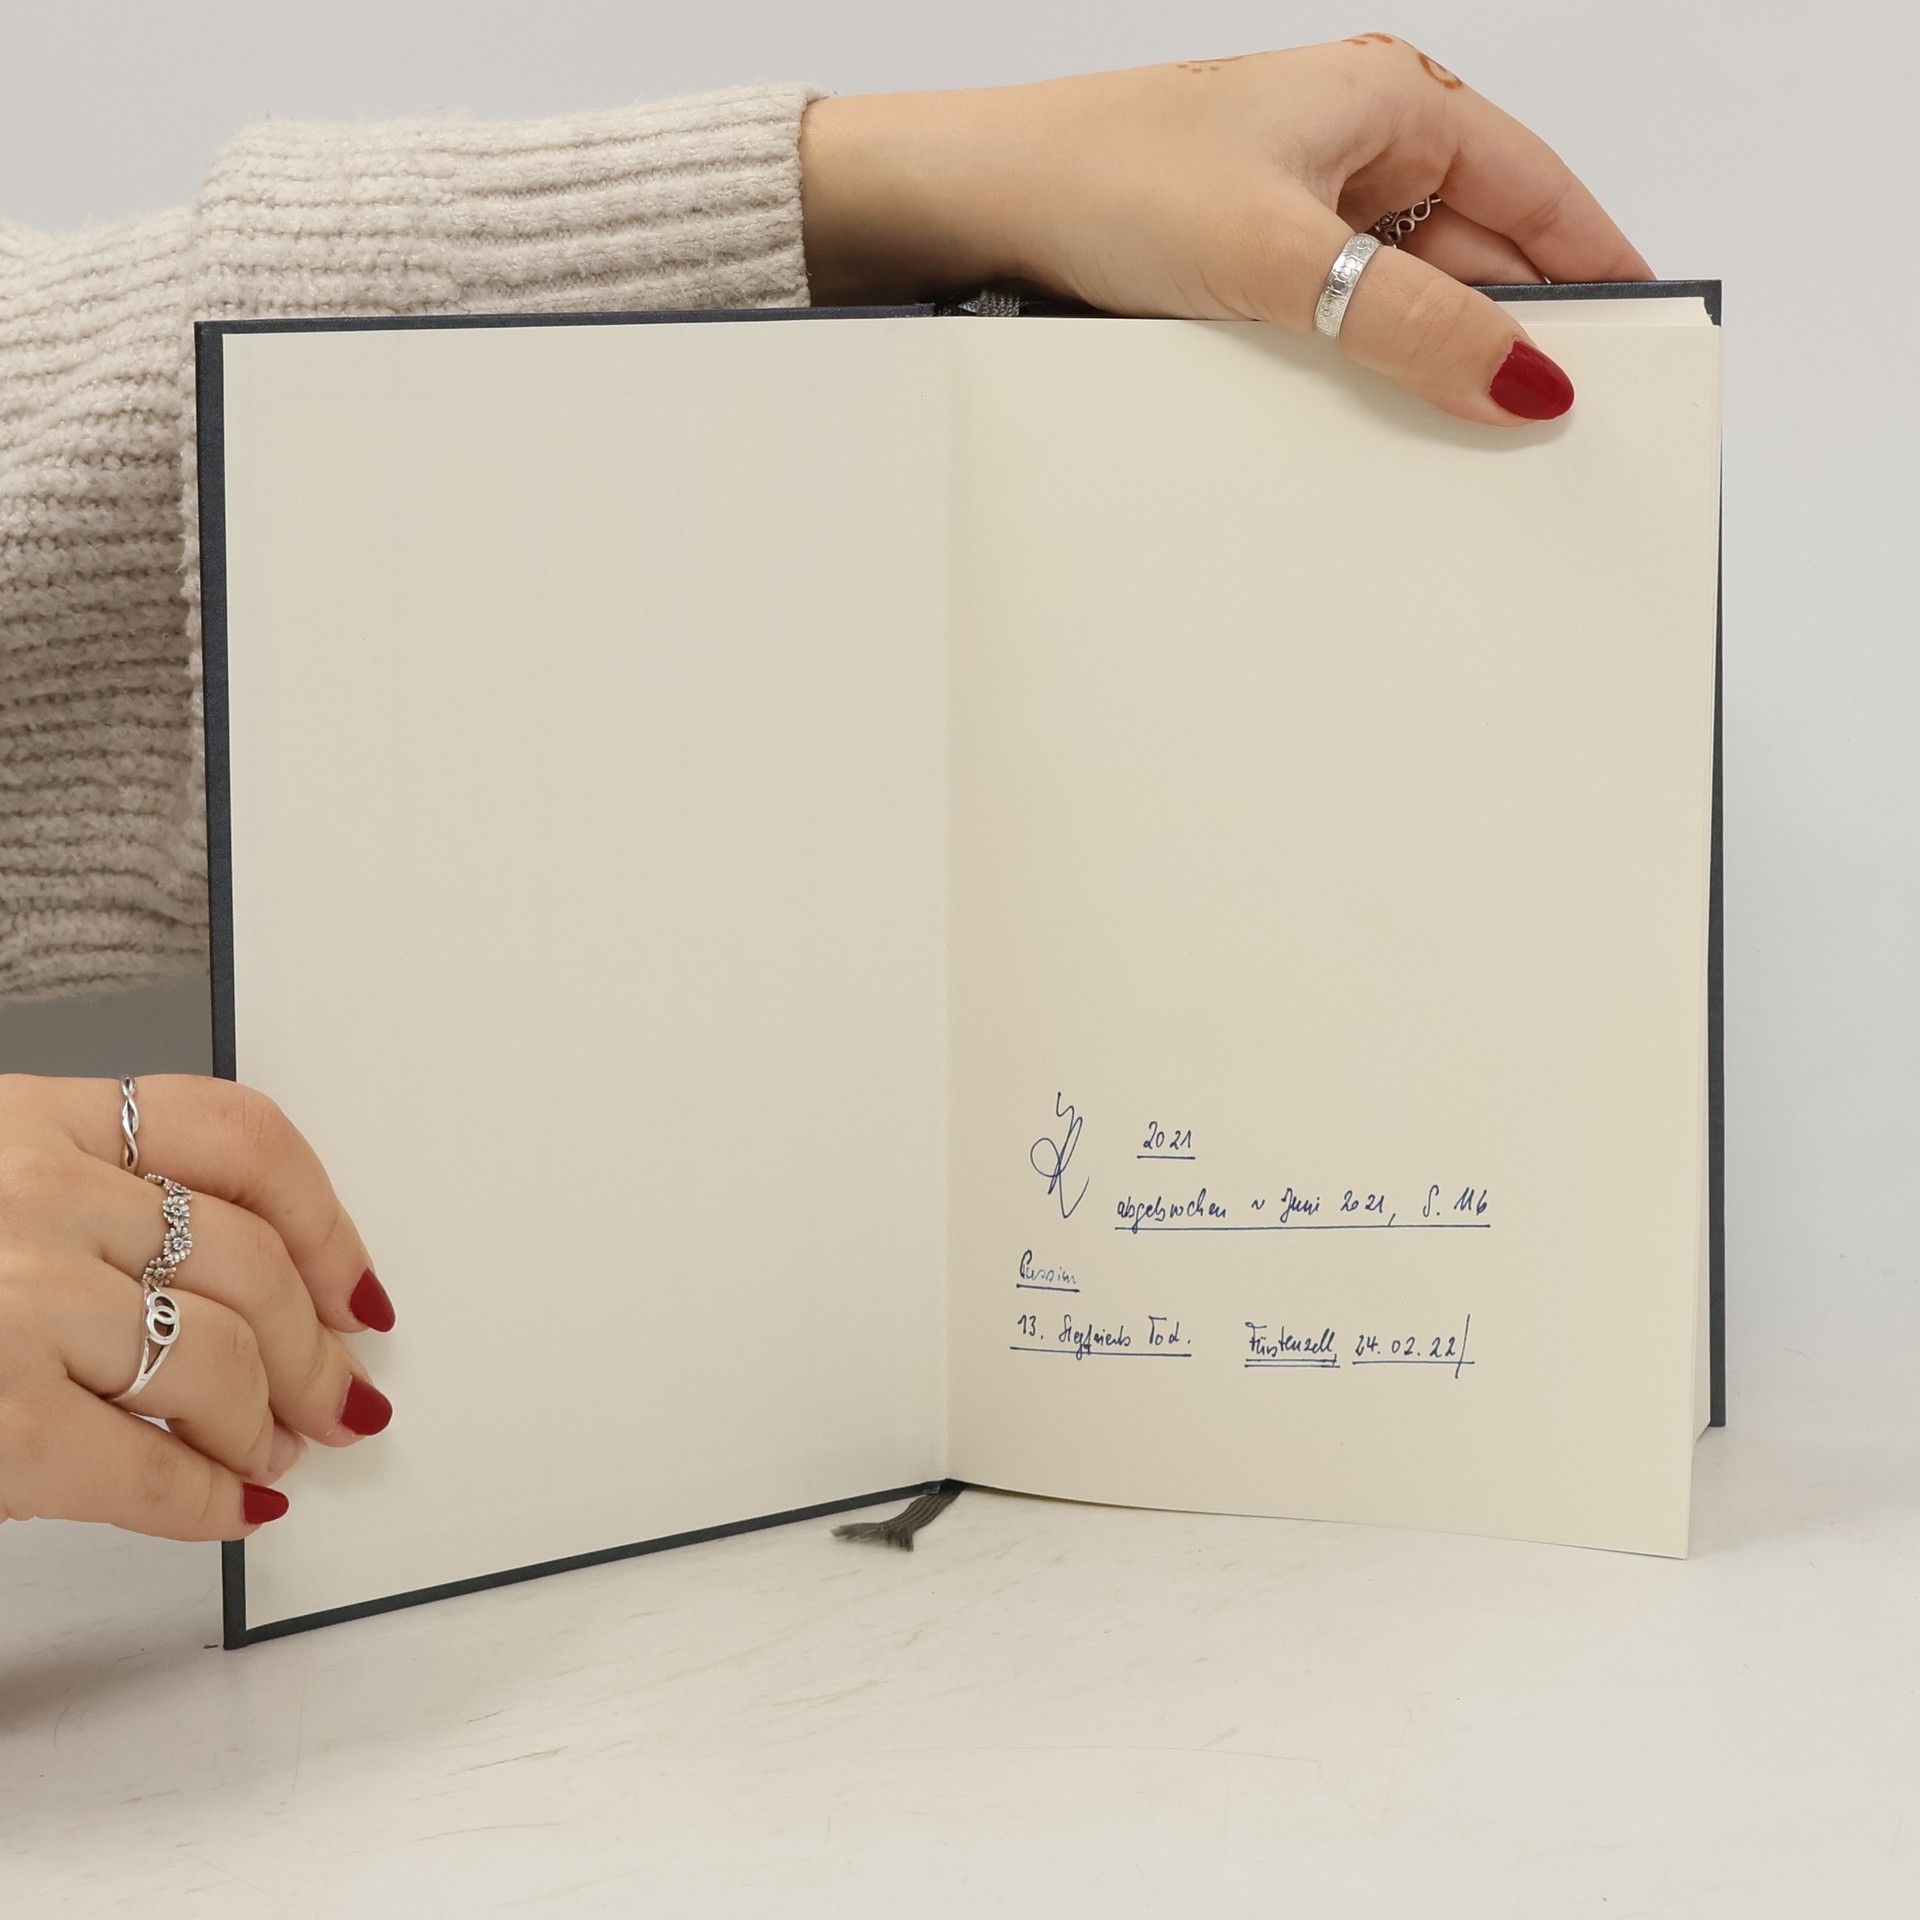 2021
abgebrochen ~ Juni 2021, S. 116
Passim
13. Siegfrieds Tod. Fürstenzell, 24.02.22/